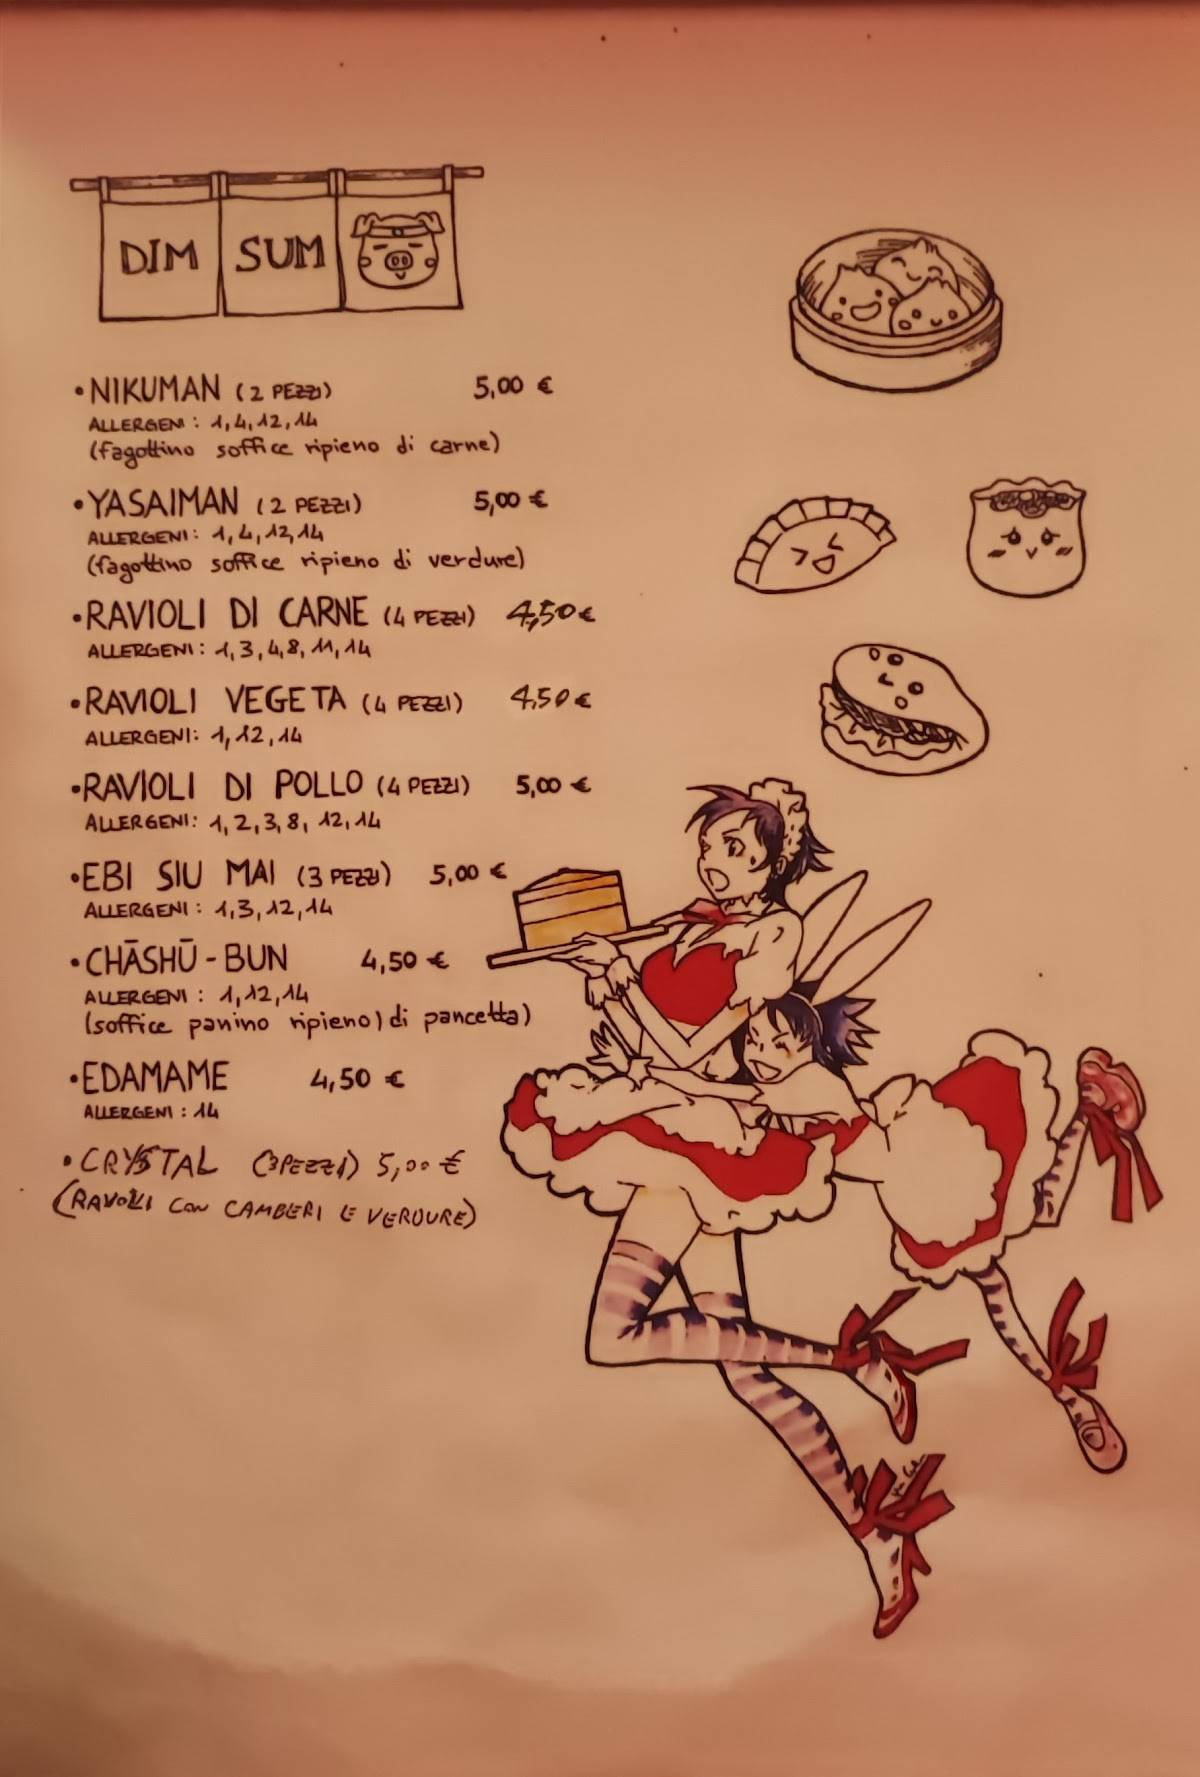 DIM SUM
•NIKUMAN (2 PEZZI) 5,00 €
ALLERGENI: 1,4,12,14
(fagottino soffice ripieno di carne)
•YASAIMAN (2 PEZZI) 5,00 €
ALLERGENI: 1,4,12,14
(fagottino soffice ripieno di verdure)
•RAVIOLI DI CARNE (4 PEZZI) 4,50 €
ALLERGENI: 1,3,4,8,11,14
•RAVIOLI VEGETA (4 PEZZI) 4,50 €
ALLERGENI: 1,12,14
•RAVIOLI DI POLLO (4 PEZZI) 5,00 €
ALLERGENI: 1,2,3,8,12,14
•EBI SIU MAI (3 PEZZI) 5,00 €
ALLERGENI: 1,3,12,14
•CHĀSHŪ-BUN 4,50 €
ALLERGENI: 1,12,14
(soffice panino ripieno) di pancetta)
•EDAMAME 4,50 €
ALLERGENI: 14
•CRYSTAL (3 PEZZI) 5,00 €
(RAVIOLI CON GAMBERI E VERDURE)